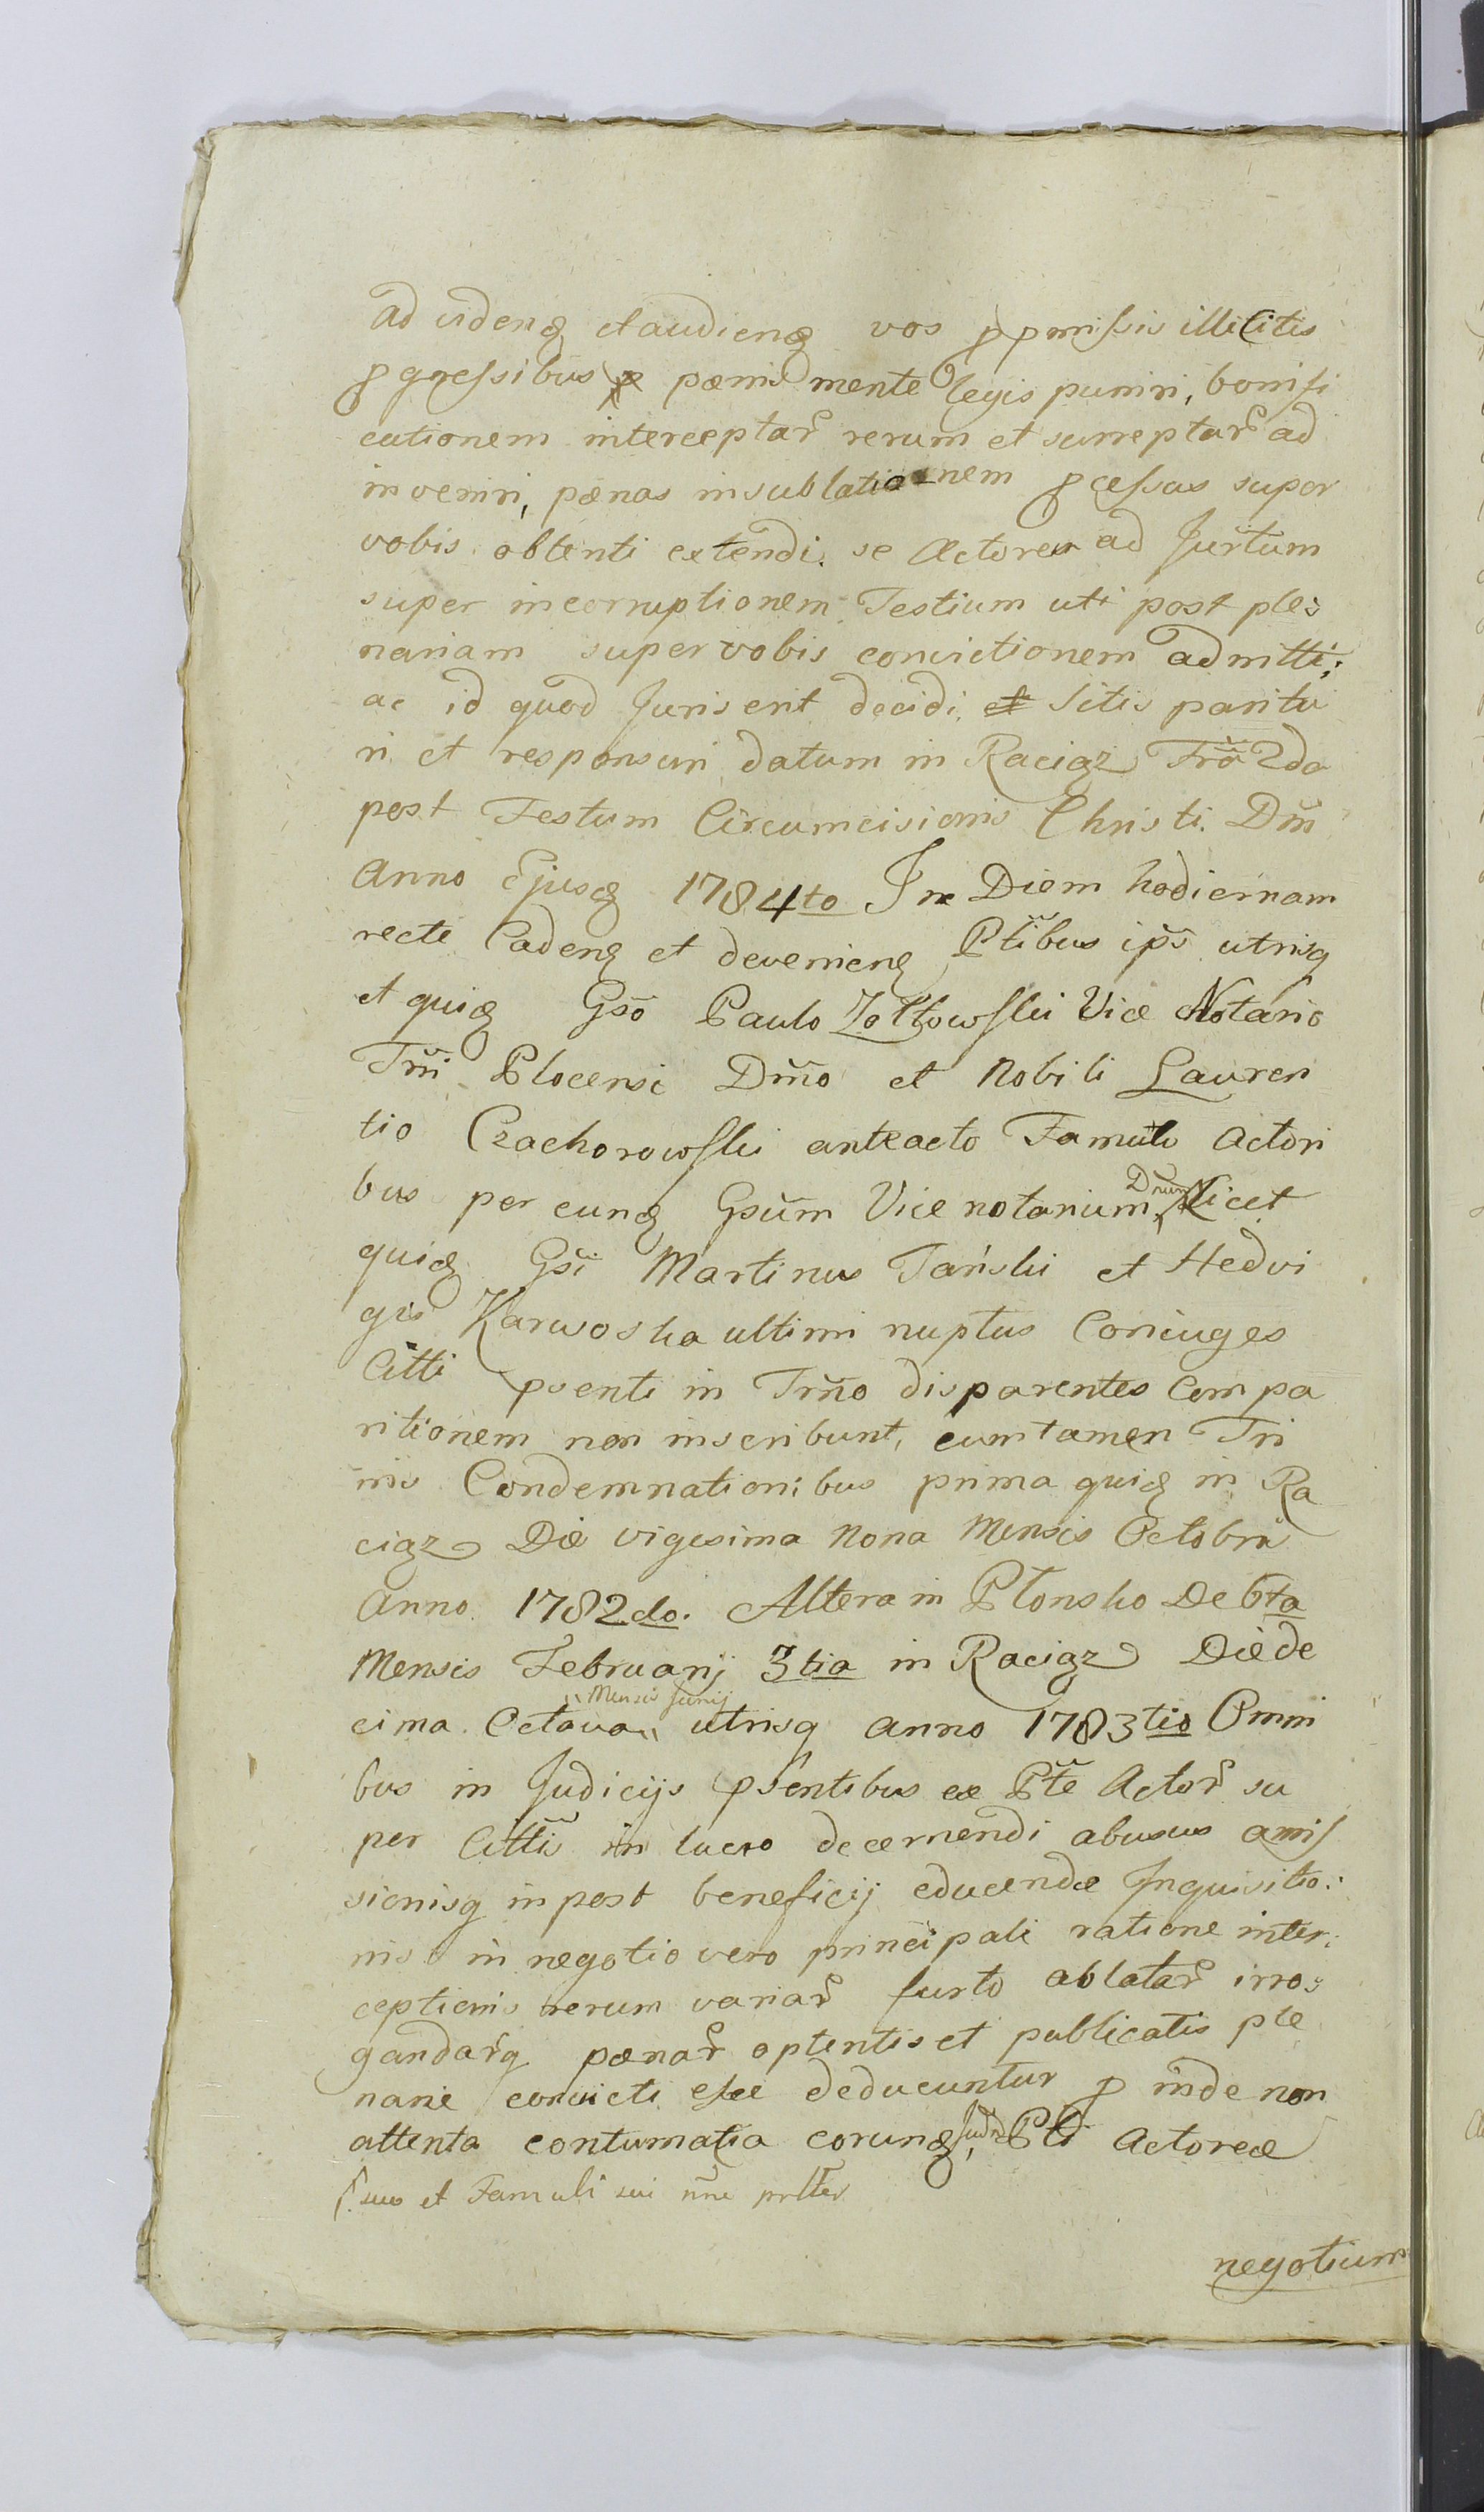 ad videnꝗ et audienꝗ vos ꝑ pmissis illicitis
ꝑgressibus pœnis mente legis puniri, bonifi
cationem interceptar̃ rerum et surreptar̃ ad
inveniri, pœnas in sublationem ꝑcessus super
vobis obtenti extendi. se Actores ad Jur̃tum
super incorruptionem Testium uti post ple:
nariam super vobis convictionem admitti;
ac id quod Juris erit decidi. Sitis paritu
ri et responsuri datum in Raciąz Fr̃a 2da
post Festum Circumcisionis Christi Dñi
Anno Ejusꝗ 1784to In Diem hodiernam
recte Cadenꝗ et devenienꝗ Pt̃ibus ip̃s utrisq
et quiꝗ Gs̃o Paulo Zołtowski Vice Notario
Tr̃ri Plocensi Dm̃o et Nobili Lauren
tio Czachorowski anteacto Famulo Actori
bus per eunꝗ Gsũm Vice notarium Dnum licet
quiꝗ Gs̃i Martinus Tański et Hedvi
gis Karwoska ultimi nuptus Coniuges
Citti psenti in Tr̃mo disparentes Compa
ritionem non inscribunt, cum tamen Tri
nis Condemnationibus prima quiꝗ in Ra
ciąz Die vigesima Nona Mensis Octobris
Anno 1782do. Altera in Płonsko De 6ta
Mensis Februarij 3tia in Raciąz Die de
cima Octava Mensis Junij utrisq Anno 1783tio Omni
bus in Judicijs psentibus ex Pt̃e Actor̃ su
per Cittis in lucro decernendi abusus amis
sionisq in post beneficij educendæ Inquisitio:
nis in negotio vero principali ratione inter:
ceptionis rerum variar̃ furto ablatar̃ irro:
gandar̃q pœnar̃ optentis et publicatis ple
narie convicti esse deducuntur ꝑ inde non
attenta contumatia eorunꝗ Pti Actoreæ
suo et Famuli sui nñe
negotium